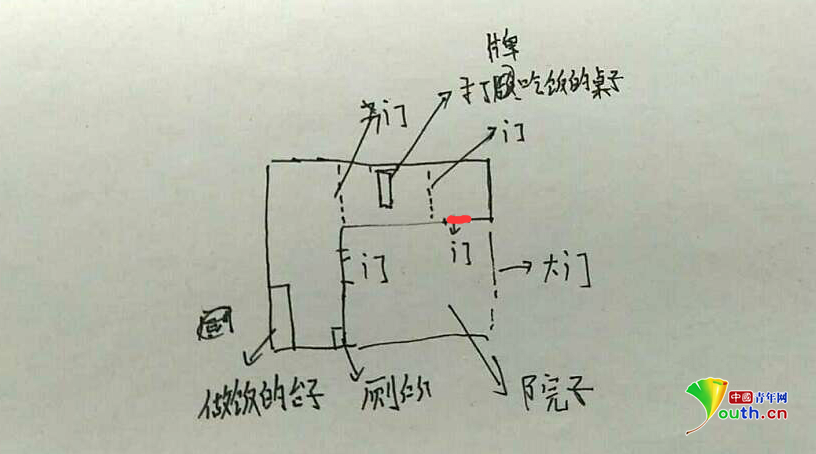 牌
打吃饭的桌子
门
门
门
门
大门
做饭的台子
厕
院子
中國青年网
Youth.cn